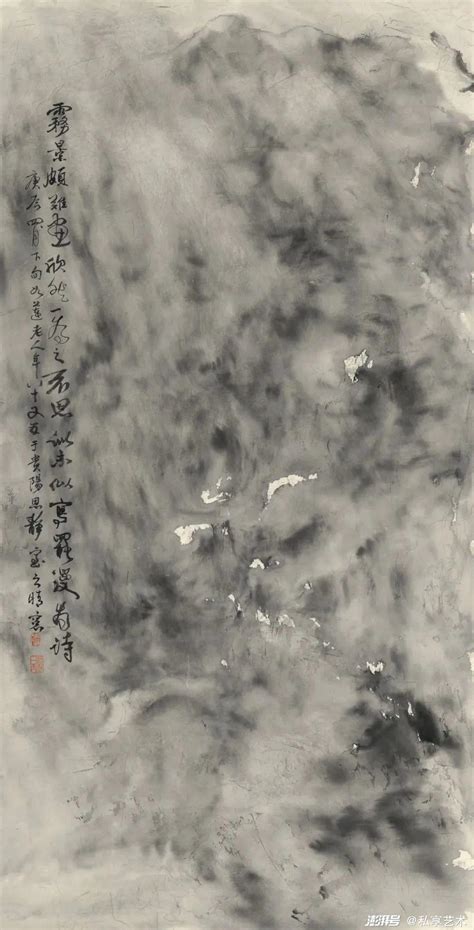 霧景頗難畫欣然一為之不思似未似寫罷漫為诗
庚辰四月下旬蓮老人年八十又五于貴陽思靜室之晴窗
澎湃号 @私享艺术